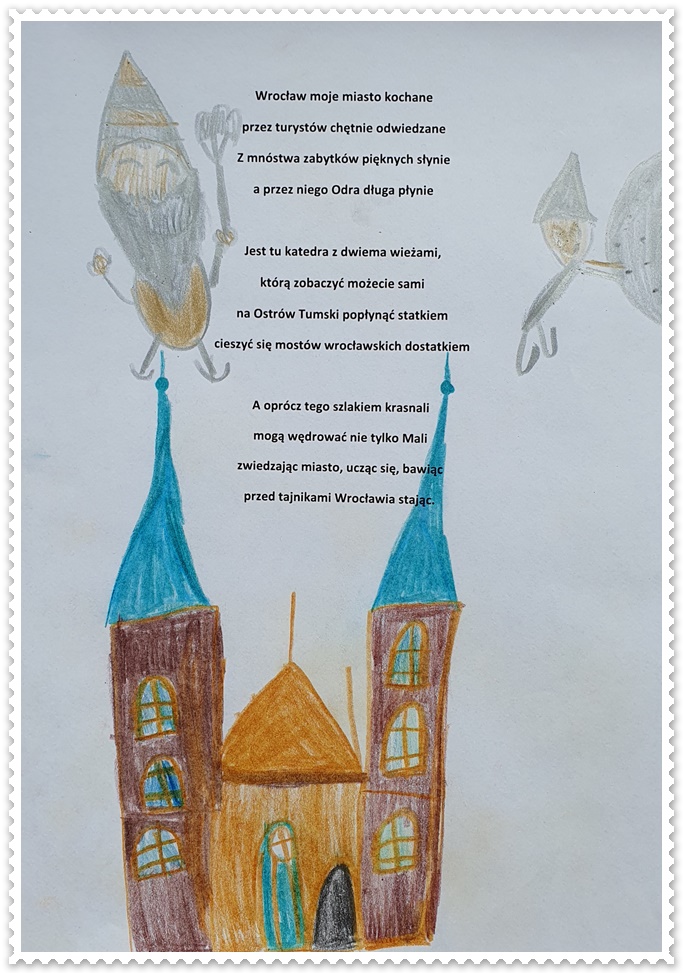 Wrocław moje miasto kochane
przez turystów chętnie odwiedzane
Z mnóstwa zabytków pięknych słynie
a przez niego Odra długa płynie
Jest tu katedra z dwiema wieżami,
którą zobaczyć możecie sami
na Ostrów Tumski popłynąć statkiem
cieszyć się mostów wrocławskich dostatkiem
A oprócz tego szlakiem krasnali
mogą wędrować nie tylko Mali
zwiedzając miasto, ucząc się, bawiąc
przed tajnikami Wrocławia stając.